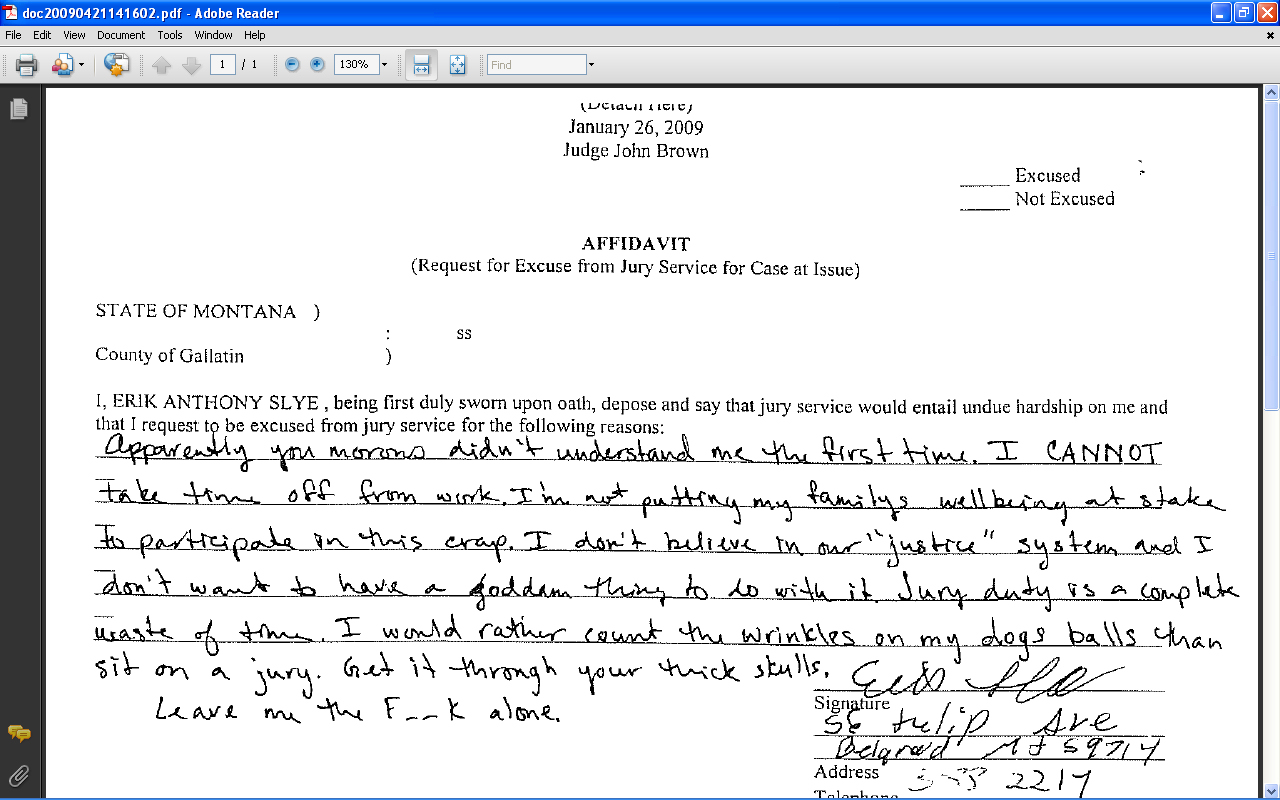 doc20090421141602.pdf - Adobe Reader
File Edit View Document Tools Window Help
1 / 1 130% Find
(Detach Here)
January 26, 2009
Judge John Brown
Excused
Not Excused
AFFIDAVIT
(Request for Excuse from Jury Service for Case at Issue)
STATE OF MONTANA )
: ss
County of Gallatin )
I, ERIK ANTHONY SLYE , being first duly sworn upon oath, depose and say that jury service would entail undue hardship on me and
that I request to be excused from jury service for the following reasons:
Apparently you morons didn't understand me the first time. I CANNOT
take time off from work. I'm not putting my familys wellbeing at stake
to participate in this crap. I don't believe in our "justice" system and I
don't want to have a goddam thing to do with it. Jury duty is a complete
waste of time. I would rather count the wrinkles on my dogs balls than
sit on a jury. Get it through your thick skulls.
Leave me the F__k alone.
Signature
tulip Ave
59714
Address
2217
Telephone